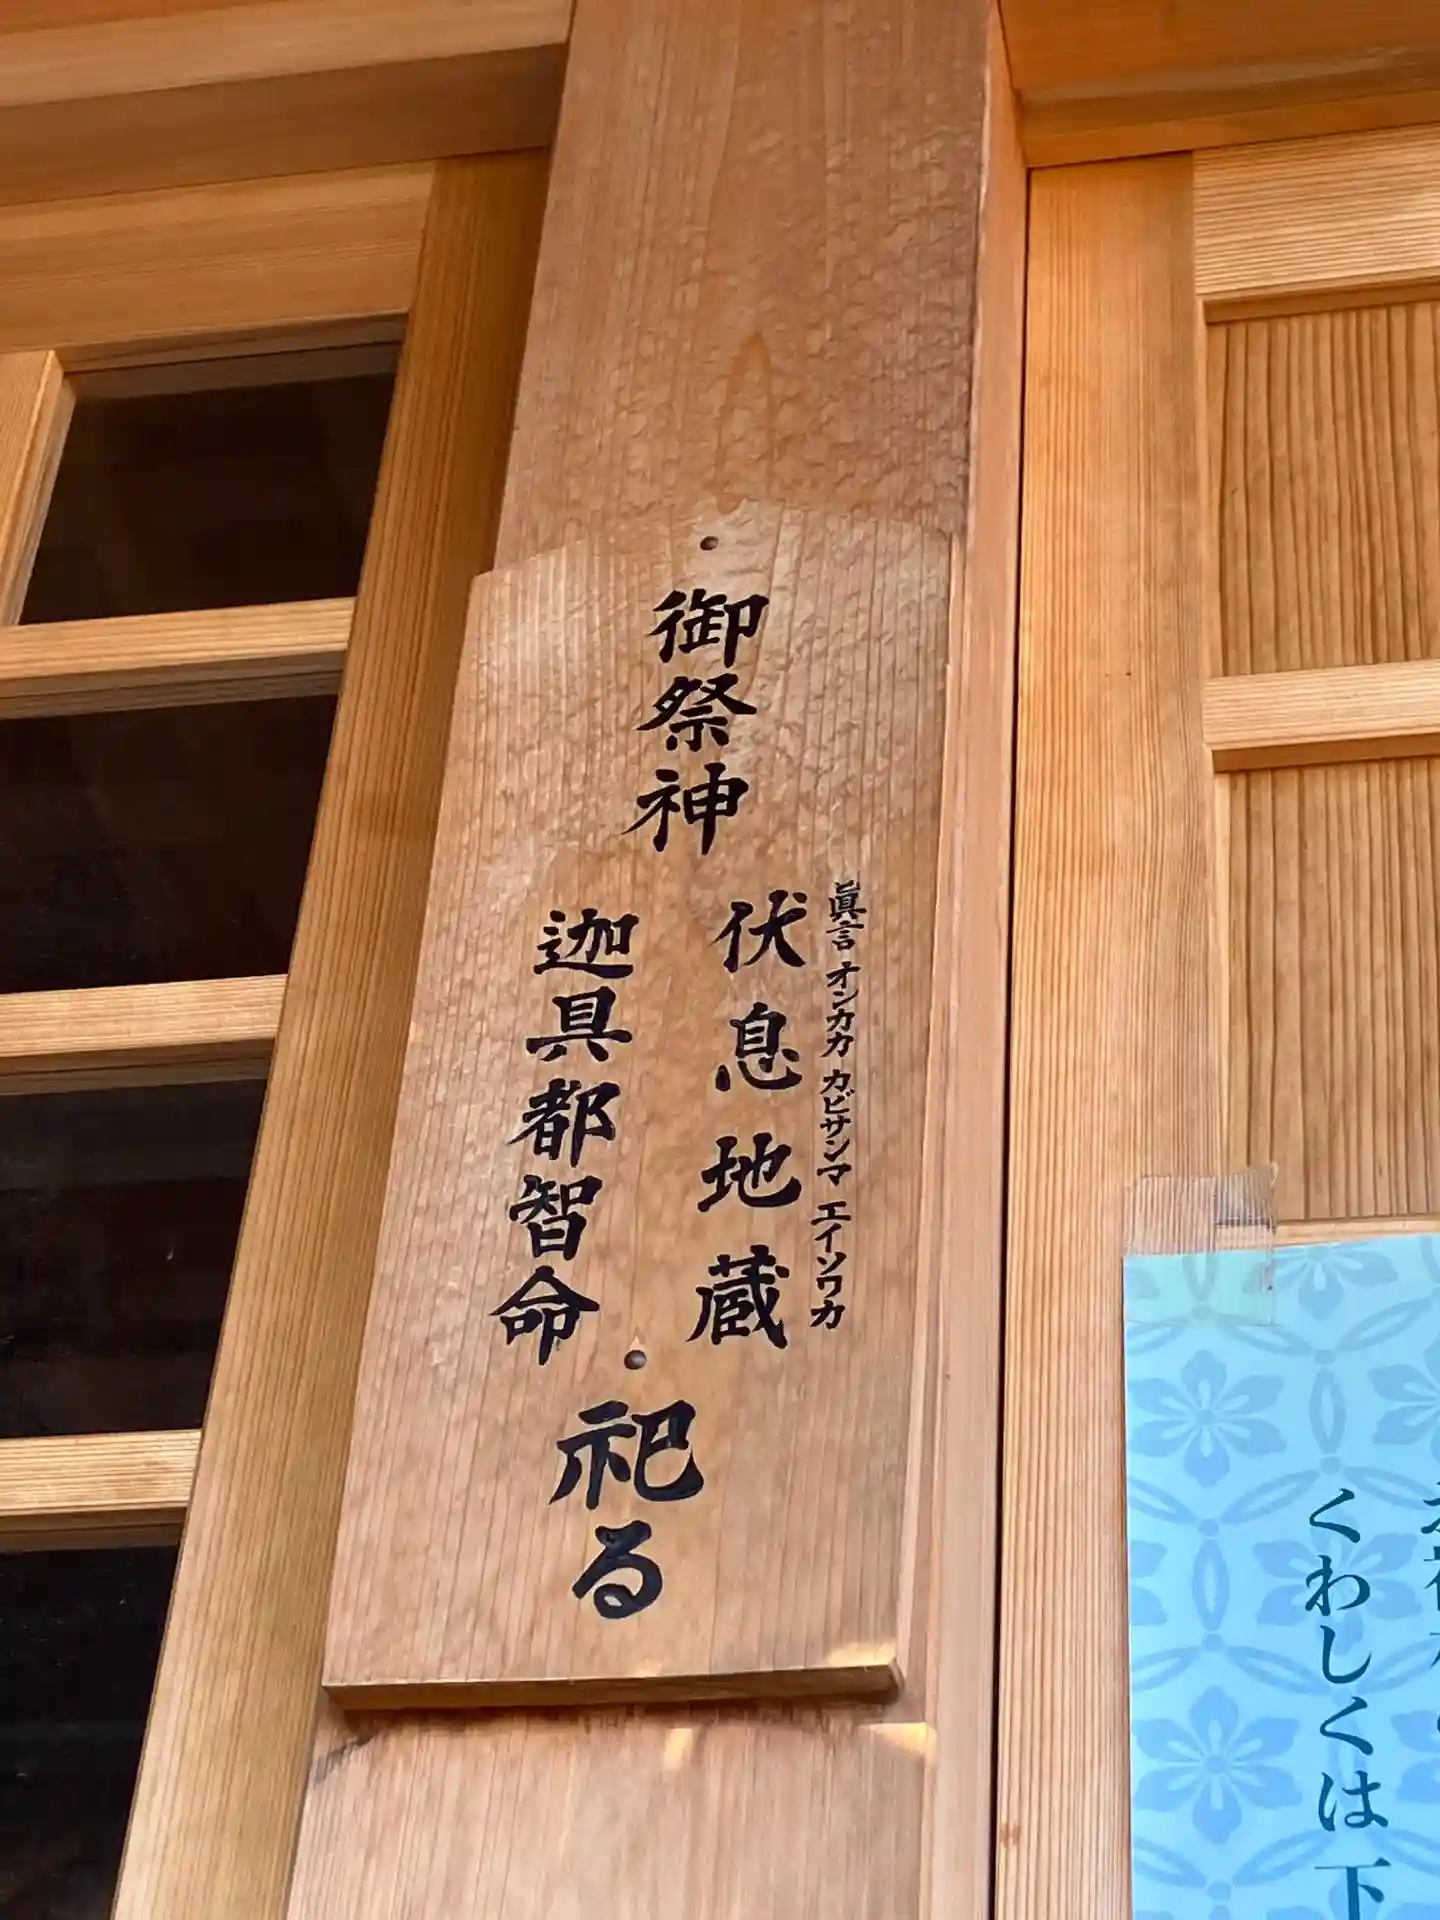 御祭神
眞言 オンカカ カビサンマ エイソワカ
伏息地蔵
迦具都智命
祀る
くわしくは下